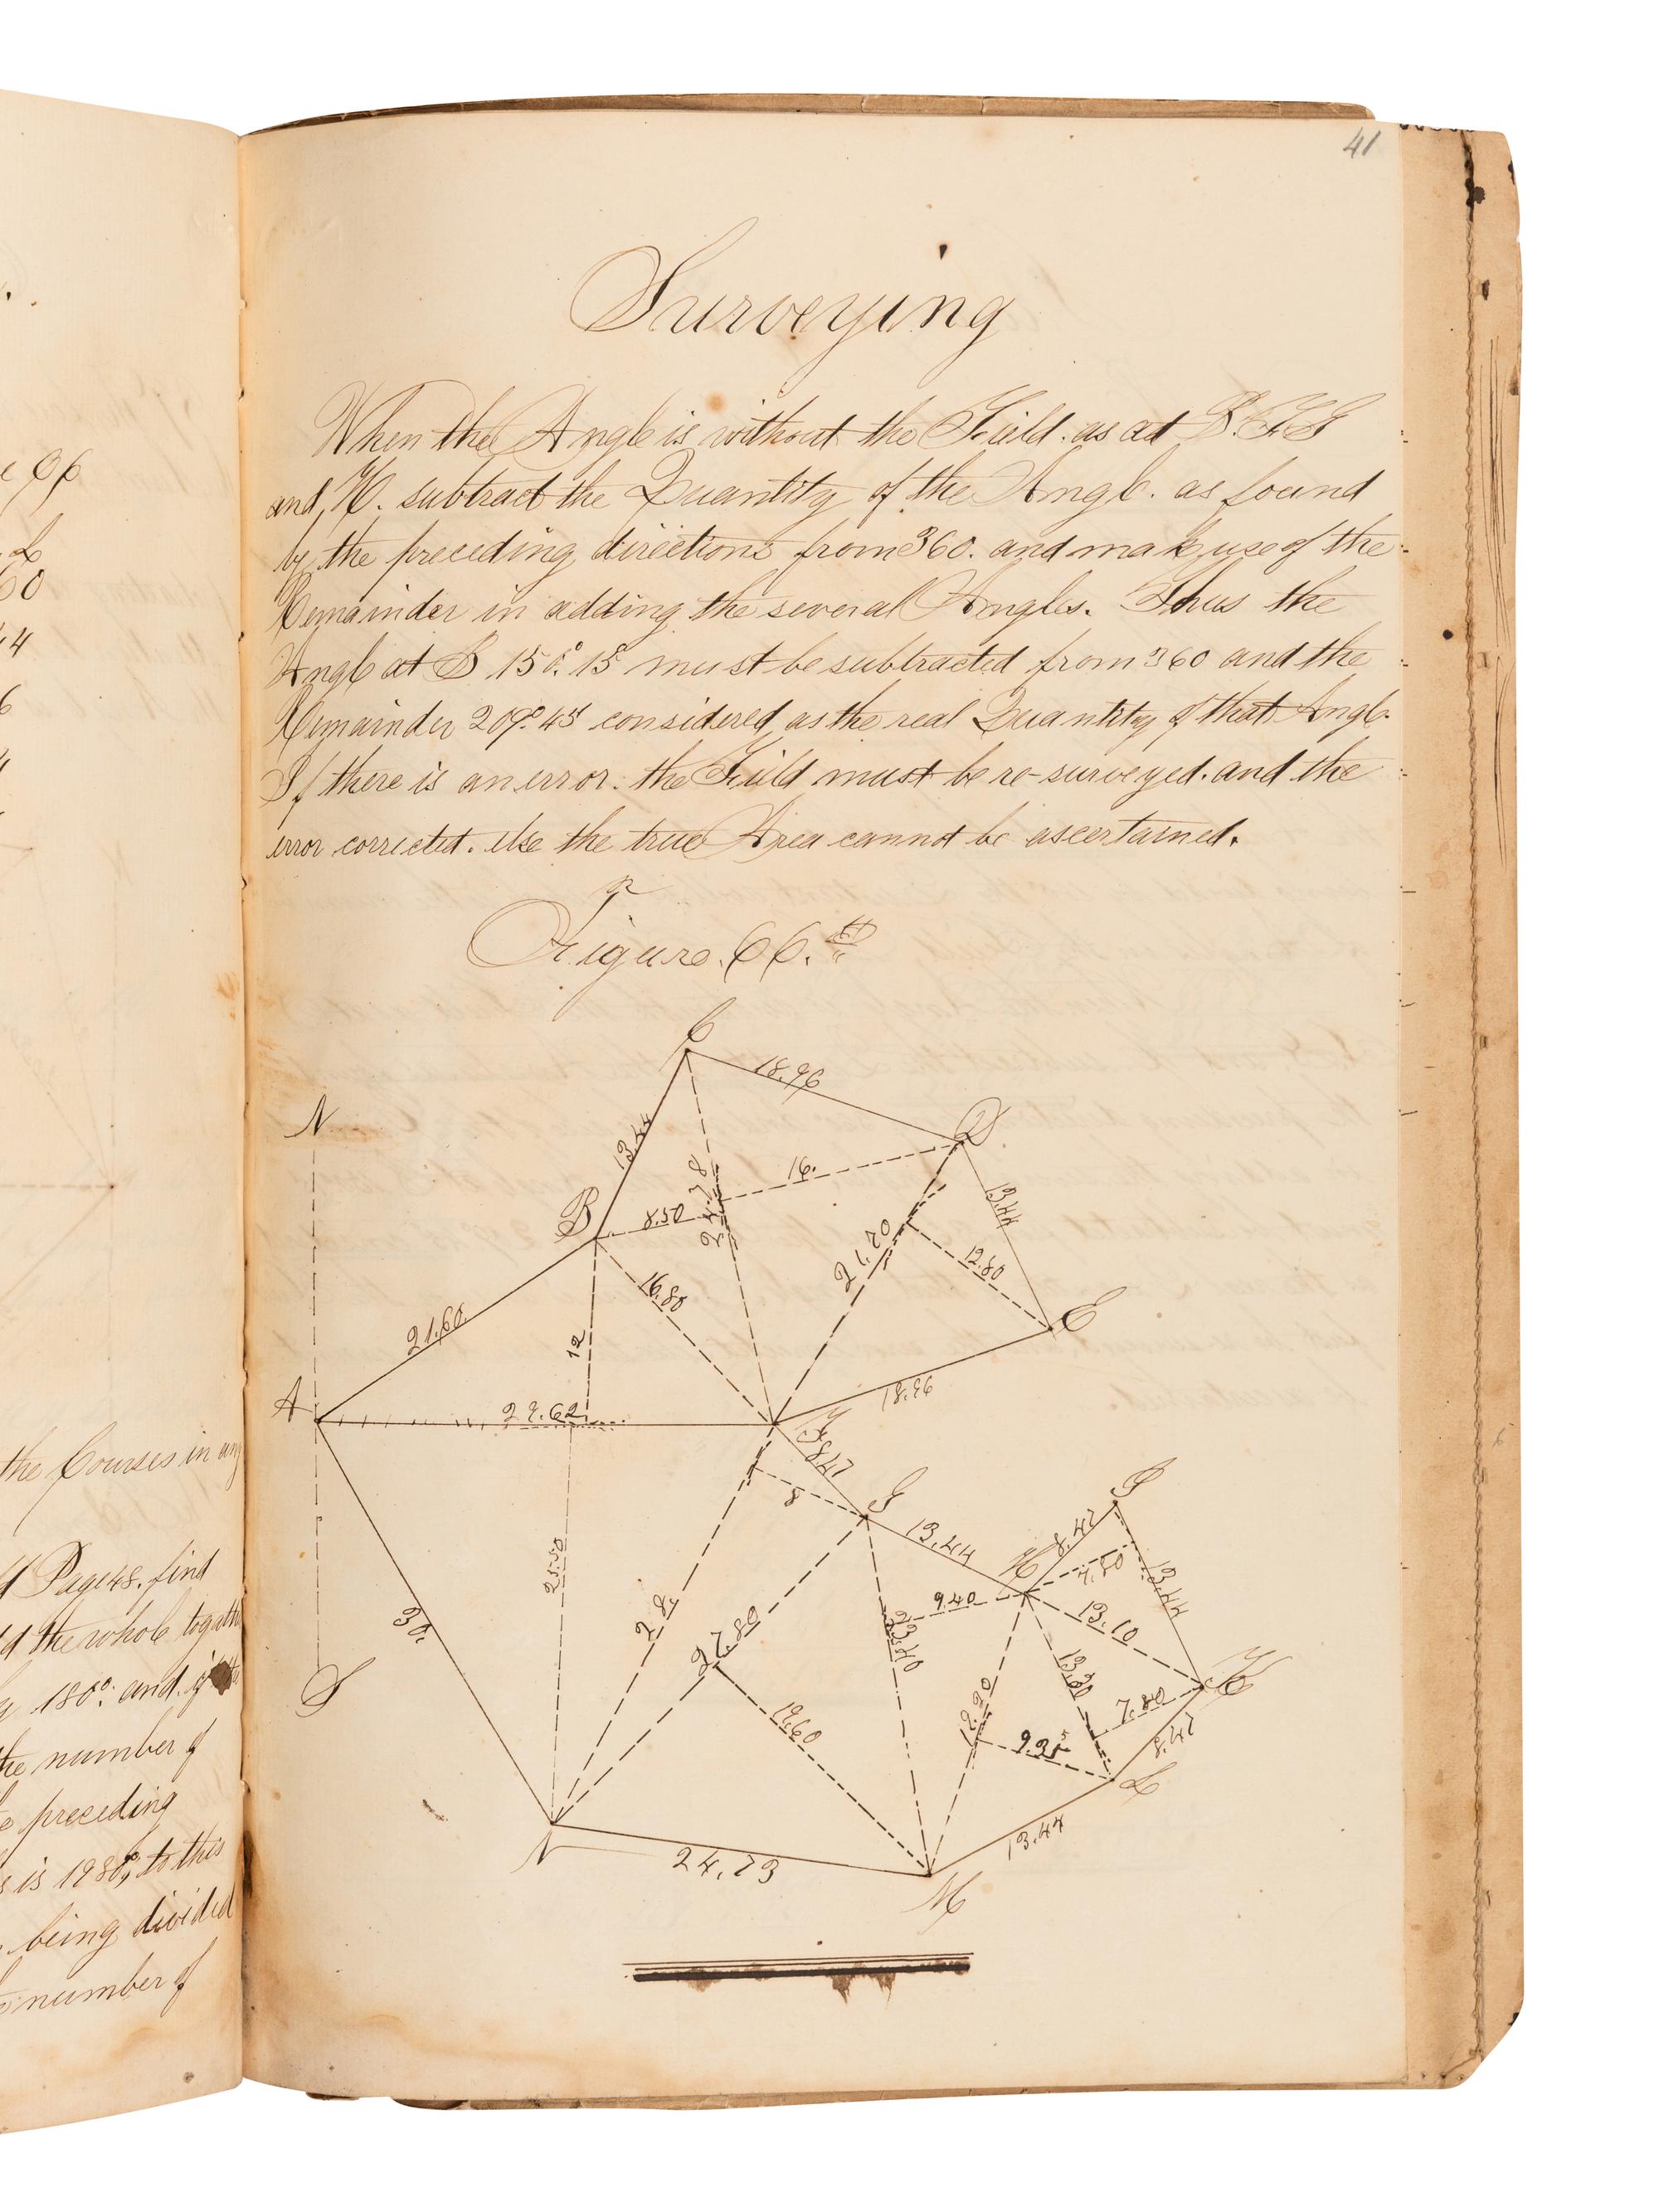 41
Surveying
When the Angle is without the Field. as at B. F. G
and, H. subtract the Quantity of the Angle. as found
by the preceding directions from 360. and make use of the
Remainder in adding the several Angles. Thus the
Angle at B 150°. 15' must be subtracted from 360 and the
Remainder 209°. 45' considered as the real Quantity of that Angle
If there is an error. the Field must be re-surveyed. and the
error corrected. else the true Area cannot be ascertained.
Figure. 66.th
C
18.96
N
D
13.44
16.
B
8.50
13.44
21.70
12.80
16.80
E
21.60
12
18.96
A
29.62
F
8.47
8
G
I
13.44
8.47
H
7.80
13.44
25.50
9.40
13.10
30.
28.
27.89
23.40
K
S
13.30
7.80
19.60
8.47
L
N
13.44
24.73
M
60
44
6
the Courses in any
Page 48. find
the whole together
180°: and. if the
the number of
preceding
is 1980°, to this
being divided
number of